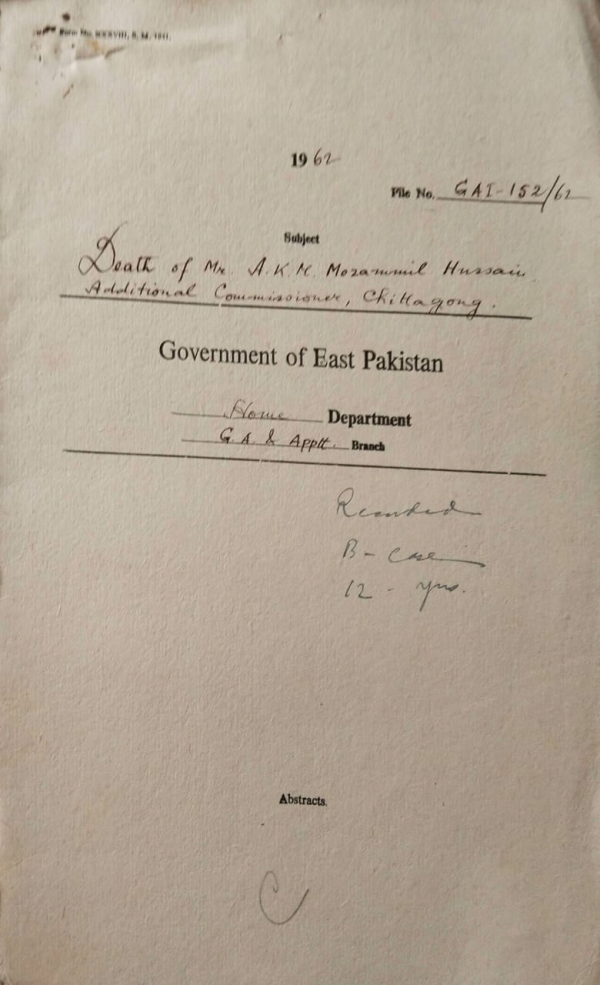 Form No. XXXVIII, S. M. 1941.
1962
File No. GAI-152/62
Subject
Death of Mr. A.K.M. Mozammil Hussain
Additional Commissioner, Chittagong.
Government of East Pakistan
Home Department
G.A. & Apptt. Branch
Recorded
B - case
12 - yrs.
Abstracts.